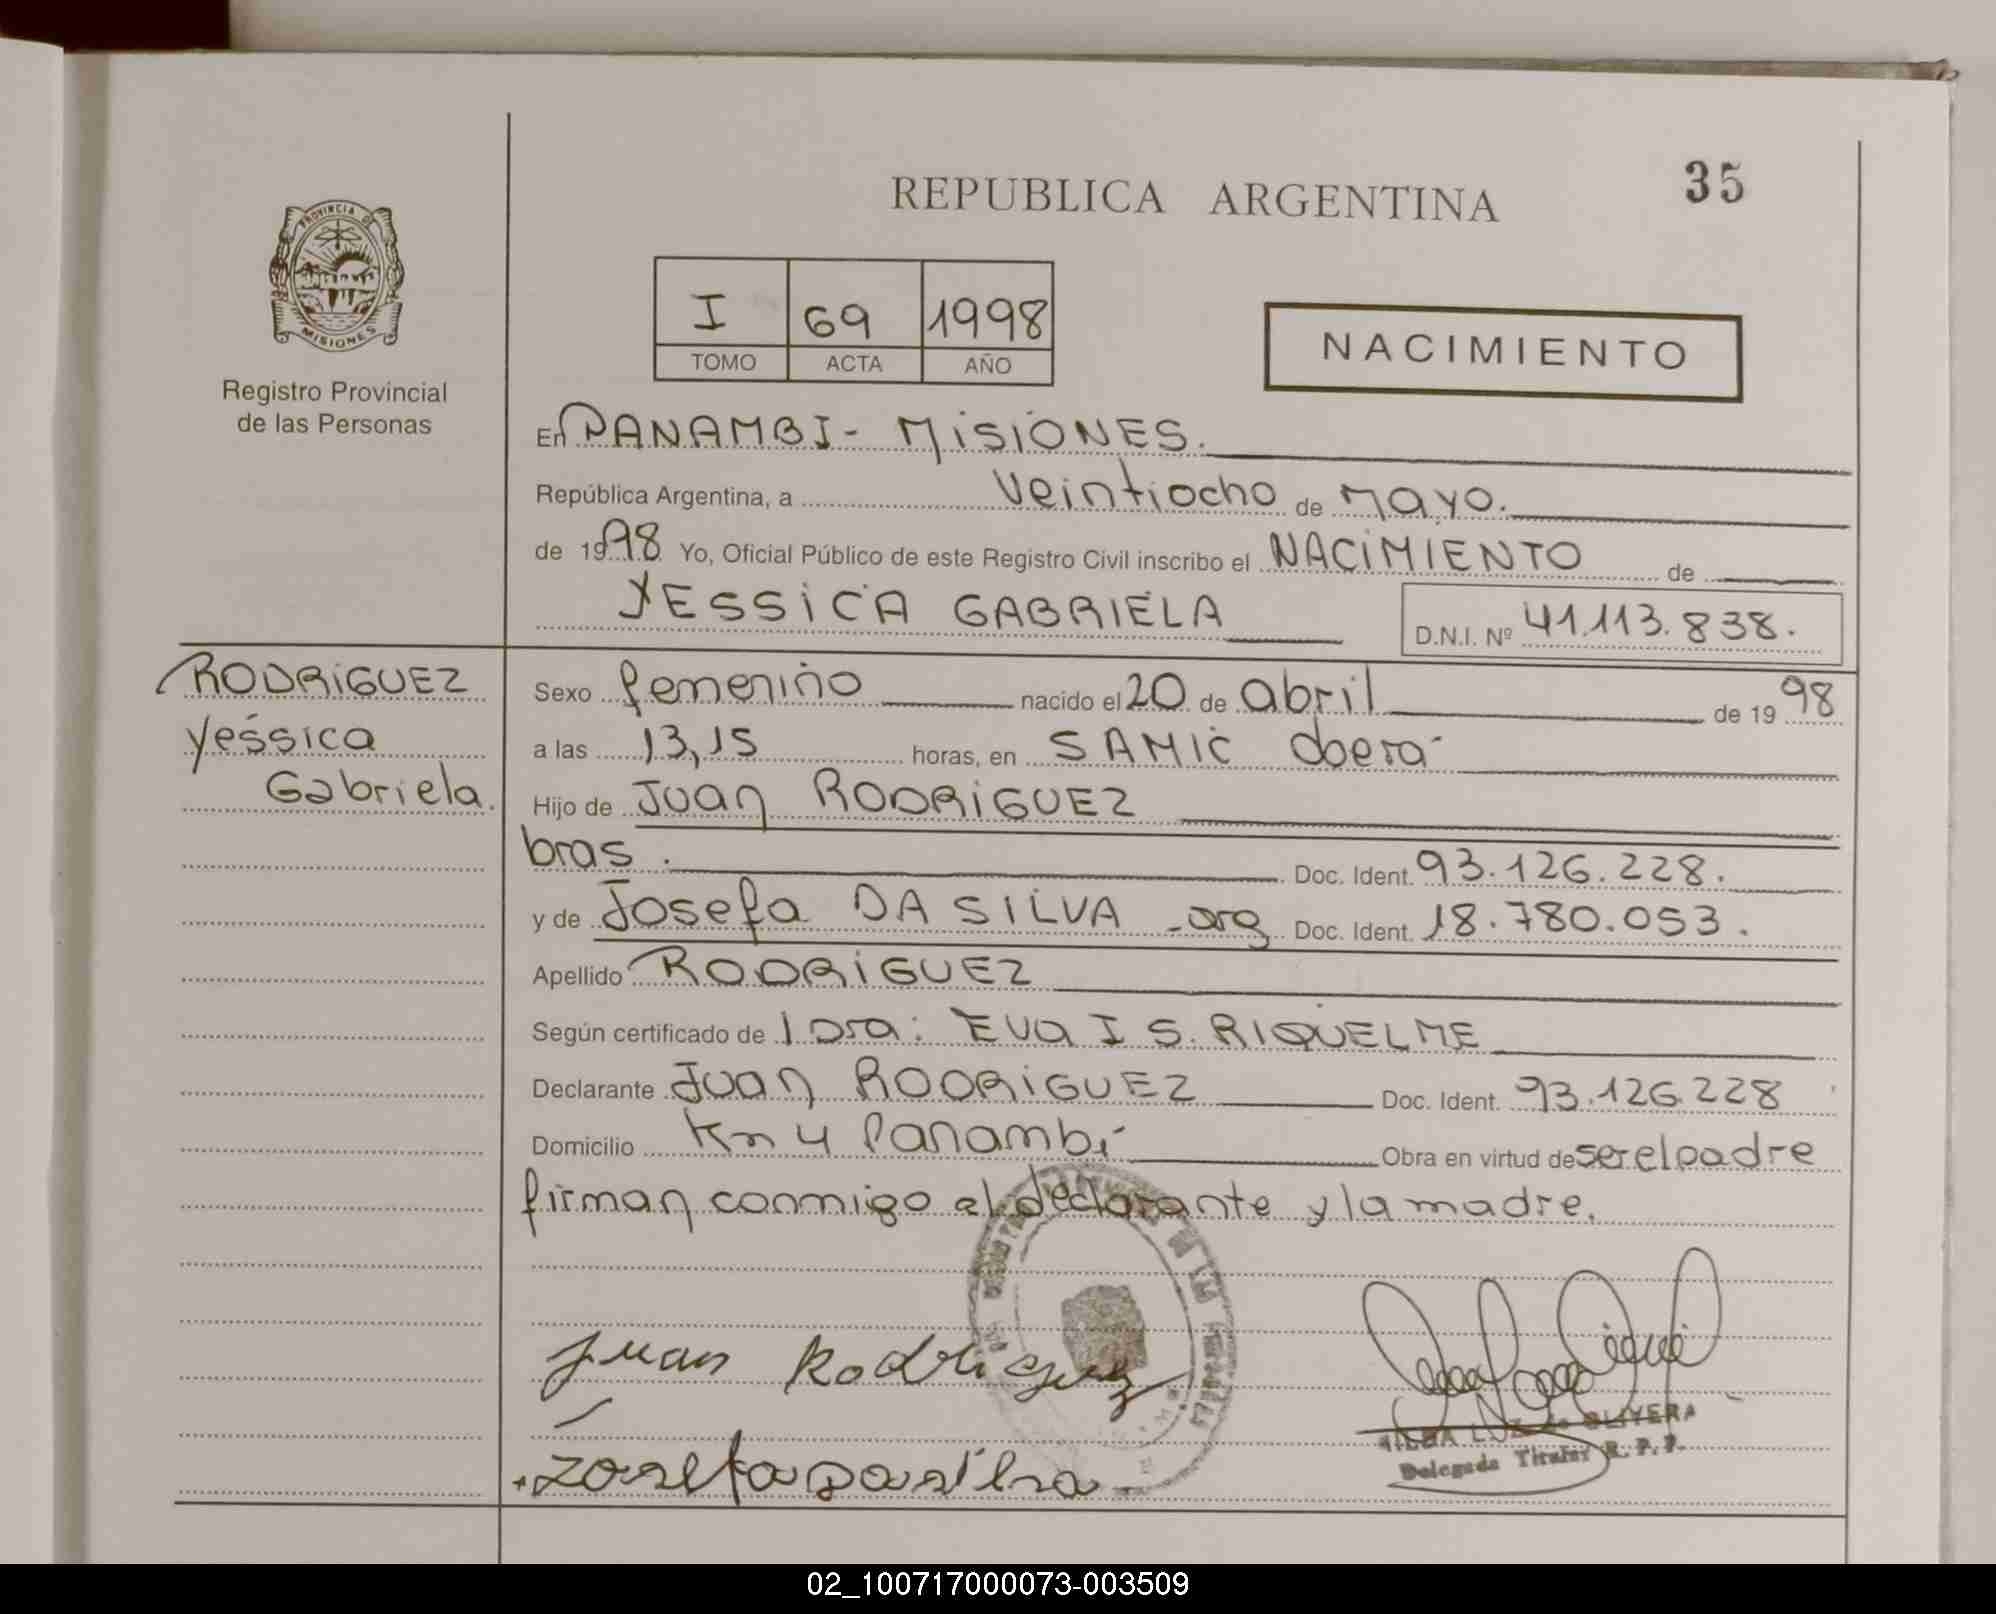 35
REPUBLICA ARGENTINA
PROVINCIA DE
MISIONES
Registro Provincial
de las Personas
I 69 1998
TOMO ACTA AÑO
NACIMIENTO
En PANAMBI - MISIONES.
República Argentina, a veintiocho de mayo.
de 1998 Yo, Oficial Público de este Registro Civil inscribo el NACIMIENTO de
YESSICA GABRIELA
D.N.I. Nº 41.113.838.
RODRIGUEZ
Yessica
Gabriela.
Sexo femenino nacido el 20 de abril de 1998
a las 13,15 horas, en SAMIC Obera
Hijo de Juan RODRIGUEZ
bras. Doc. Ident. 93.126.228.
y de Josefa DA SILVA - arg Doc. Ident. 18.780.053.
Apellido RODRIGUEZ
Según certificado de l Dra: EVA I S. RIQUELME
Declarante Juan RODRIGUEZ Doc. Ident. 93.126.228
Domicilio Km 4 Panambí Obra en virtud de ser el padre
firman conmigo el declarante y la madre.
Juan Rodriguez
Josefa da silva
LUZ de OLIVERA
Delegada Titular R. P. P.
02_100717000073-003509